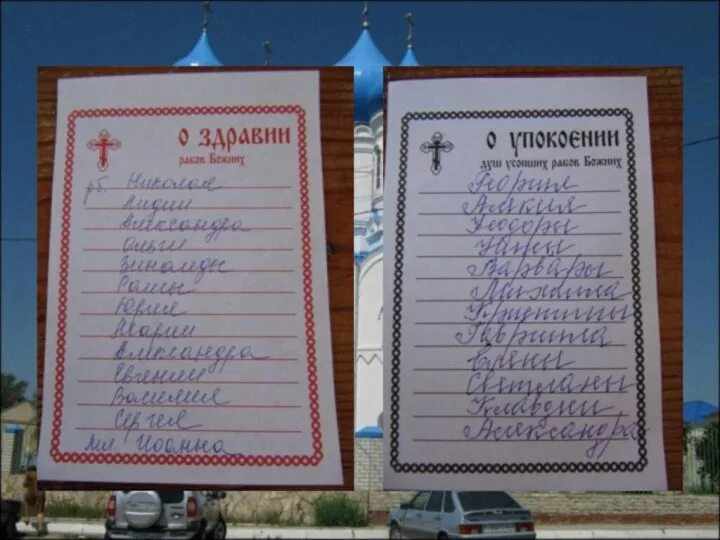 О ЗДРАВИИ
рабов Божиих
рб. Николая
Лидии
Александра
Ольги
Зинаиды
Раисы
Юрия
Марии
Александра
Евгении
Василия
Сергея
мл. Иоанна
О УПОКОЕНИИ
душ усопших рабов Божиих
Георгия
Феодоры
Нины
Варвары
Михаила
Гавриила
Елены
Светланы
Клавдии
Александра